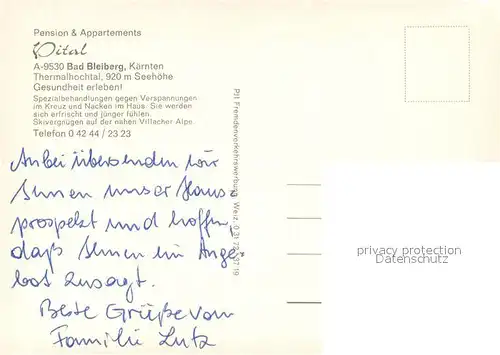 Pension & Appartements
Vital
A-9530 Bad Bleiberg, Kärnten
Thermalhochtal, 920 m Seehöhe
Gesundheit erleben!
Spezialbehandlungen gegen Verspannungen
im Kreuz und Nacken im Haus. Sie werden
sich erfrischt und jünger fühlen.
Skivergnügen auf der nahen Villacher Alpe.
Telefon 0 42 44 / 23 23
Anbei übersenden wir
Ihnen unser Haus-
prospekt und hoffen,
daß Ihnen ein Ange-
bot zusagt.
Beste Grüße von
Familie Lutz
Pit Fremdenverkehrswerbung, Weiz,
privacy protection
Datenschutz